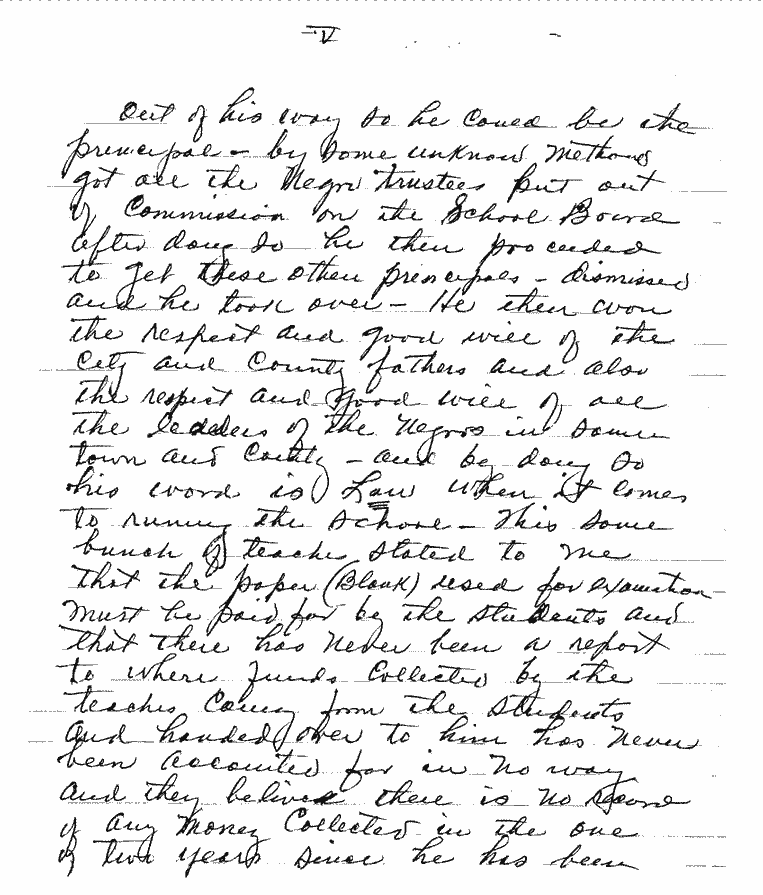 IV
out of his way so he could be the
principal - by some unknow methods
got all the Negro trustees put out
of Commission on the School Board
after doing so he then proceeded
to get these other principals - dismissed
and he took over - He then won
the respect and good will of the
City and County fathers and also
the respect and good will of all
the leaders of the Negros in some
town and County - and by doing so
his word is Law when it comes
to runing the school - This some
bunch of teache stated to me
that the paper (Blank) used for examation
must be paid for by the students and
that there has never been a report
to where funds Collected by the
teaches Coming from the students
and handed over to him has never
been accounted for in no way
and they believe there is no record
of any money Collected in the one
of two years since he has been